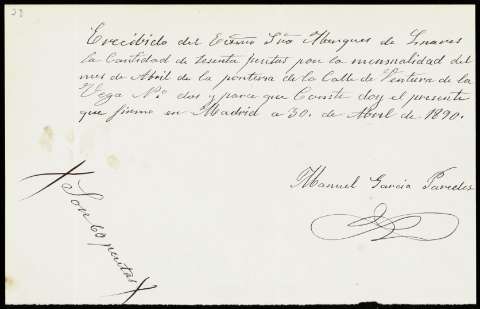 23
E recibido del Exmo Sr̃o Marques de Linares
la Cantidad de Sesenta pesetas por la mensualidad del
mes de Abril de la pontura de la Calle de Ventura de la
Vega Nº dos y para que Conste doy el presente
que firmo en Madrid a 30. de Abril de 1890.
Manuel García Paredes
Son 60 pesetas